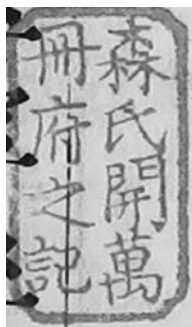 森氏開萬
冊府之記